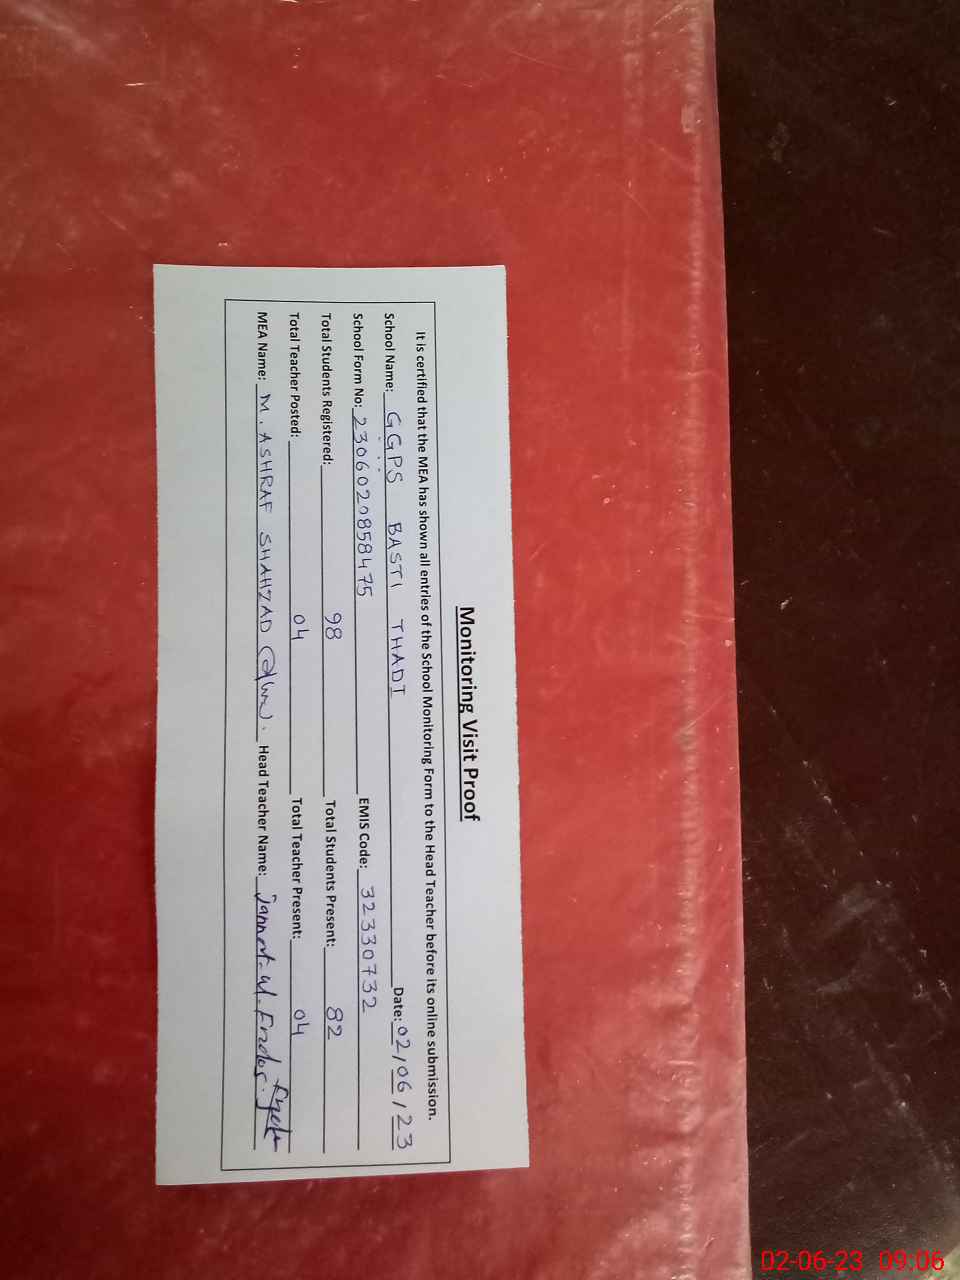 Monitoring Visit Proof
It is certified that the MEA has shown all entries of the School Monitoring Form to the Head Teacher before its online submission.
School Name: GGPS BASTI THADI Date: 02/06/23
School Form No: 2306020858475 EMIS Code: 32330732
Total Students Registered: 98 Total Students Present: 82
Total Teacher Posted: 04 Total Teacher Present: 04
MEA Name: M. ASHRAF SHAHZAD Head Teacher Name: Jannat. Ul. Firdos.
02-06-23 09:06